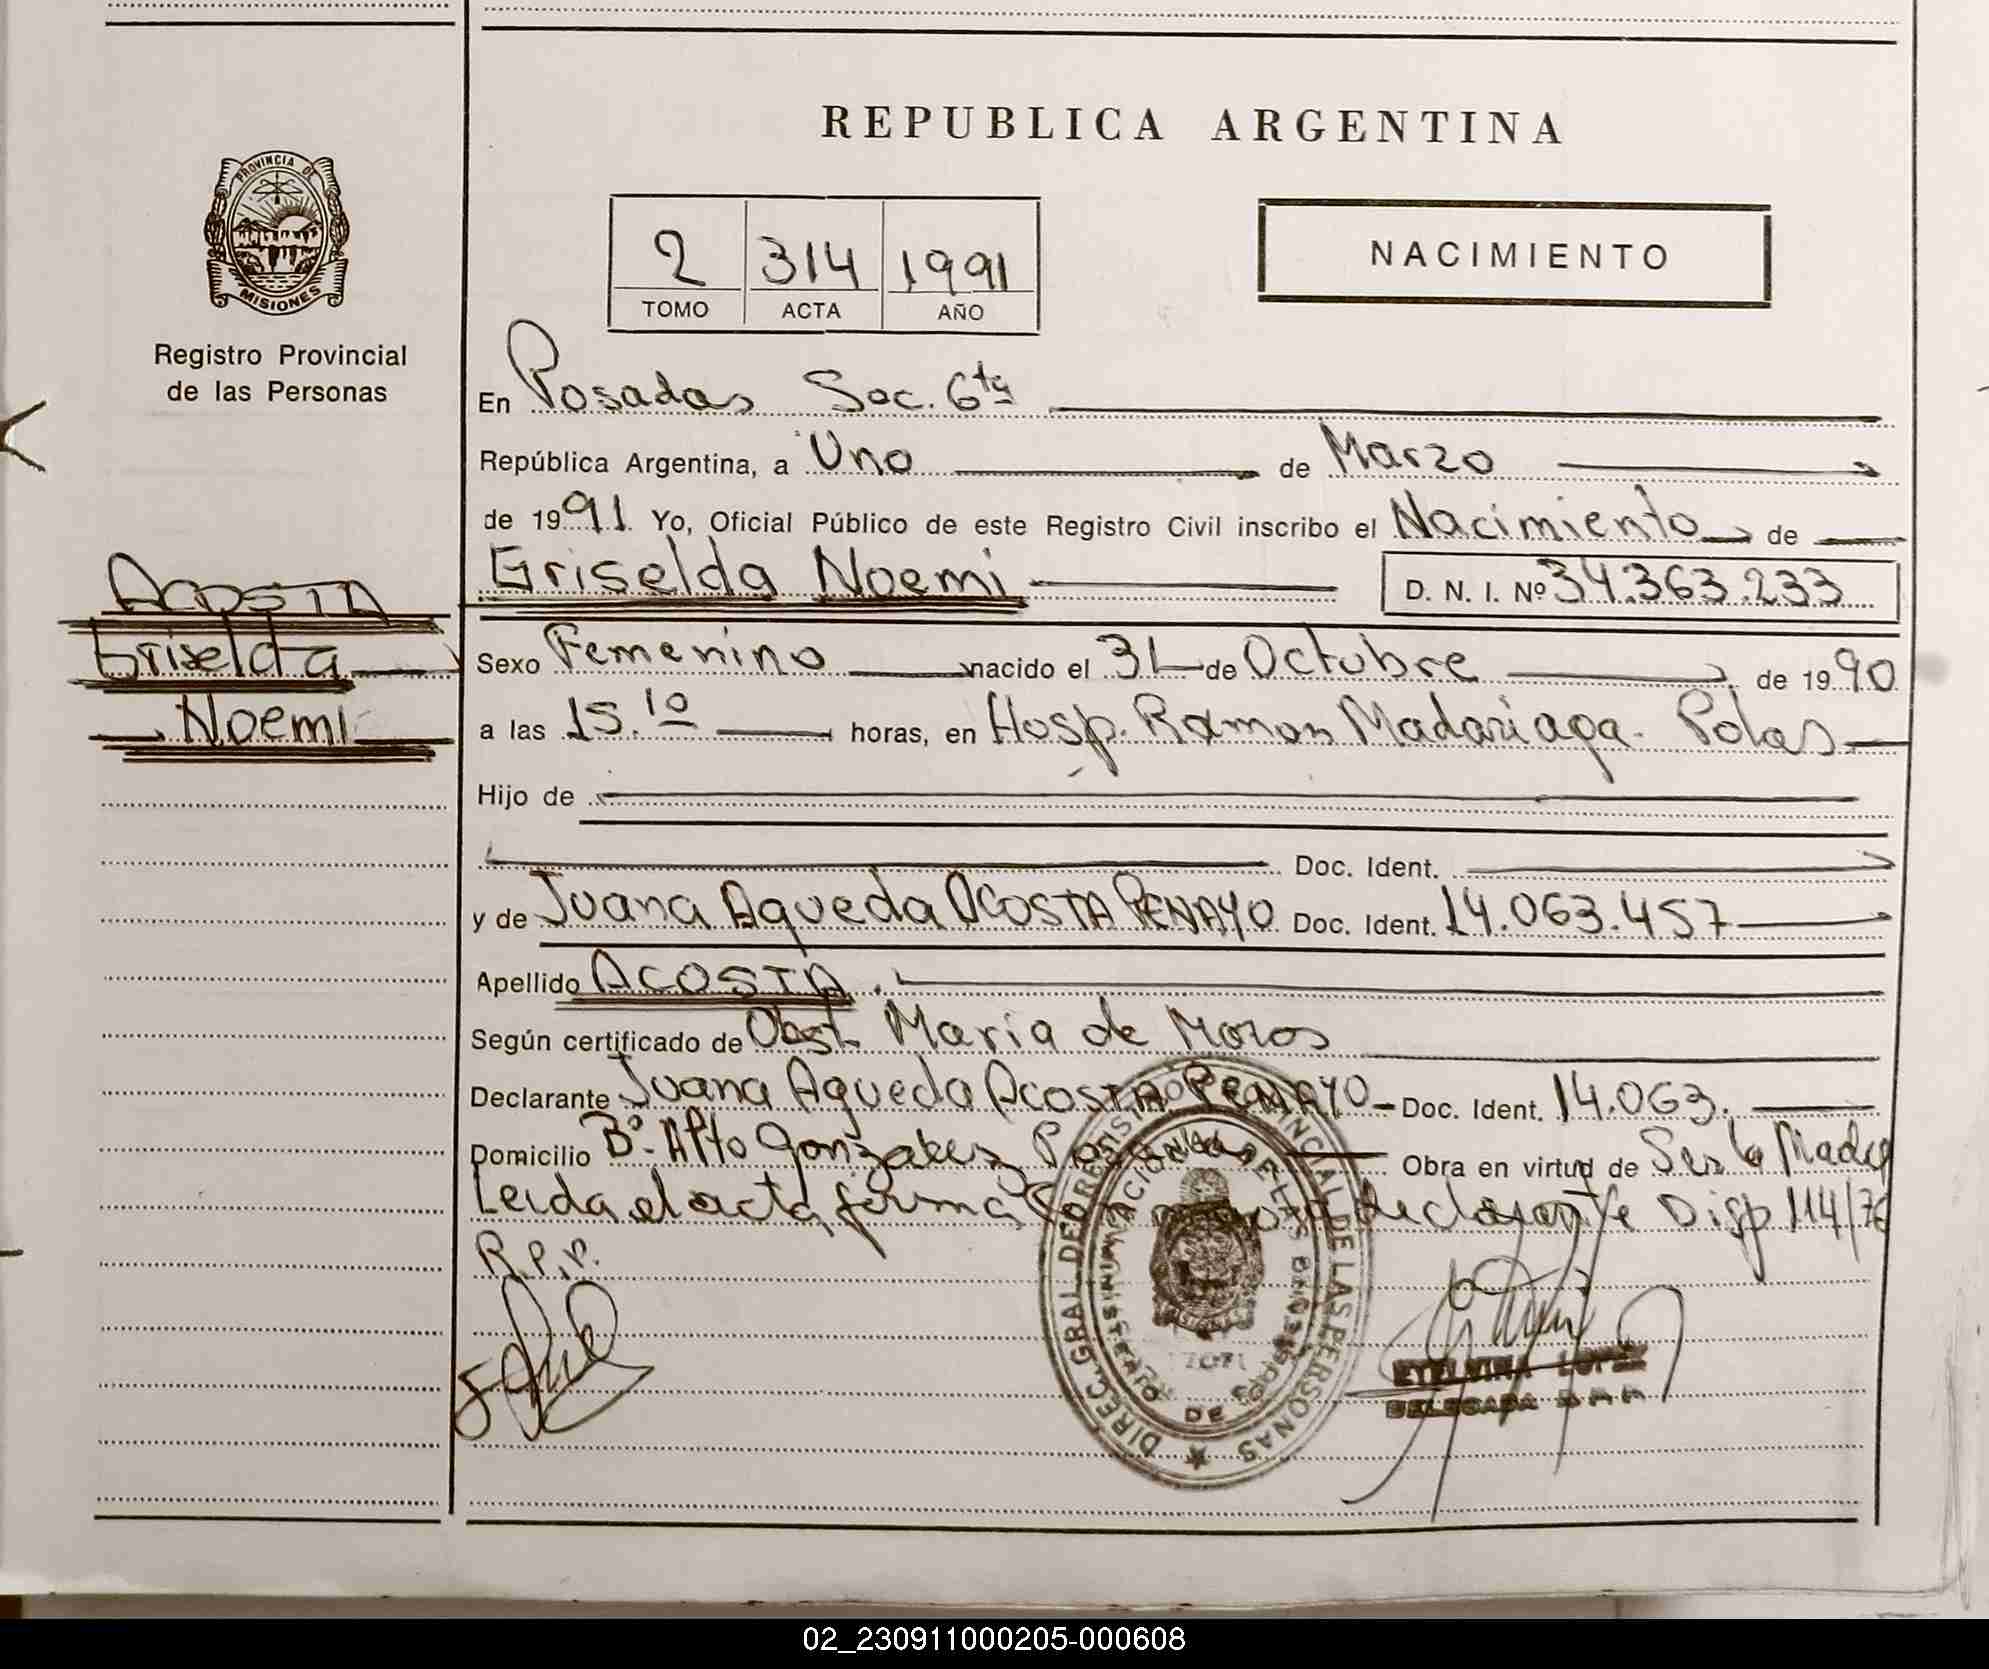 PROVINCIA DE
MISIONES
Registro Provincial
de las Personas
ACOSTA
Griselda
Noemi
REPUBLICA ARGENTINA
2 314 1991
TOMO ACTA AÑO
NACIMIENTO
En Posadas Sec. 6ta
República Argentina, a Uno de Marzo
de 1991 Yo, Oficial Público de este Registro Civil inscribo el Nacimiento de
Griselda Noemi D. N. I. Nº 34.363.233
Sexo Femenino nacido el 31 de Octubre de 1990
a las 15.10 horas, en Hosp. Ramon Madariaga.
Hijo de
Doc. Ident.
y de Juana Agueda ACOSTA PENAYO Doc. Ident. 14.063.457
Apellido ACOSTA.
Según certificado de Obst. Maria de Moros
Declarante Juana Agueda Acosta PENAYO Doc. Ident. 14.063.
Domicilio Bº. Alto Gonzalez Posadas Obra en virtud de Ser la Madre
Leida el acta firma declarante Disp 114/76
R.P.P.
DIREC. GRAL. DEL REGISTRO PROVINCIAL DE LAS PERSONAS
MISIONES
LOPEZ
DELEGADA
02_230911000205-000608